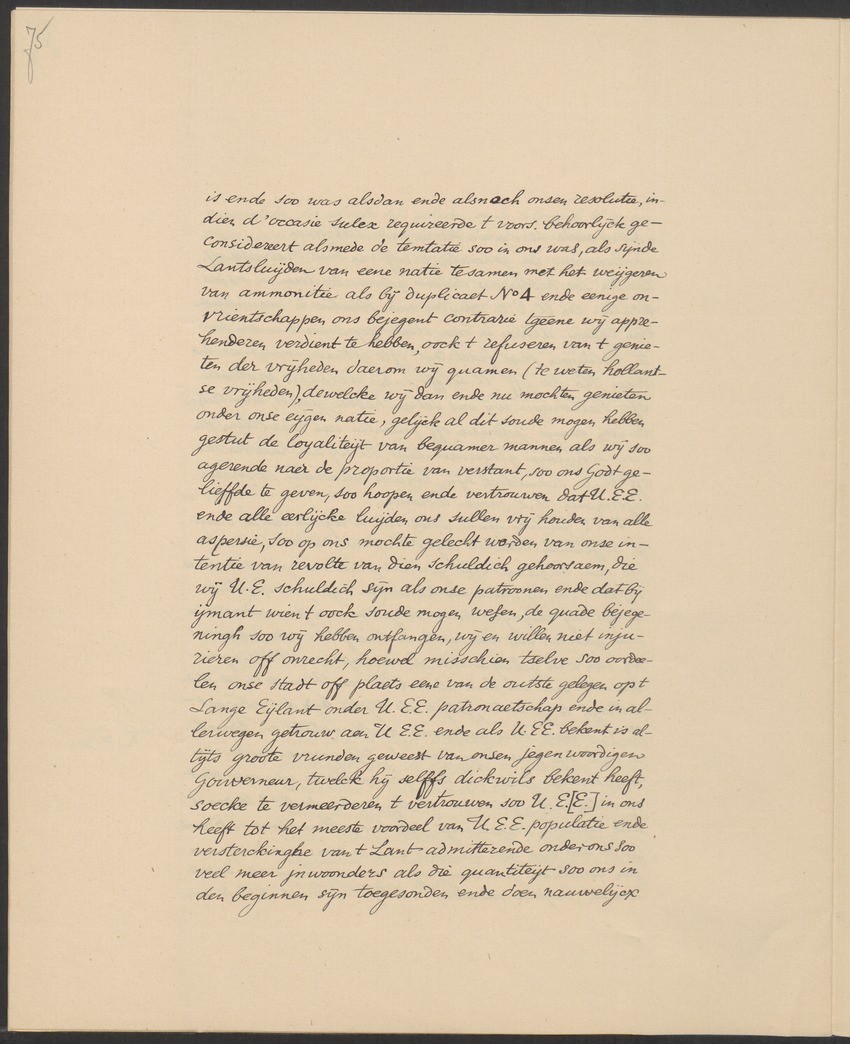 75
is ende soo was alsdan ende alsnoch onsen resolutie, in-
dien d'occasie sulcx requireerde t voors. behoorlijck ge-
considereert alsmede de temtatie soo in ons was, als sijnde
Lantsluijden van eene natie tesamen met het weijgeren
van ammonitie als bij duplicaet No 4 ende eenige on-
vrientschappen ons bejegent contrarie tgeene wij appre-
henderen verdient te hebben, oock t refuseren van t genie-
ten der vrijheden daerom wij quamen (te weten hollant-
se vrijheden), dewelcke wij dan ende nu mochten genieten
onder onse eijgen natie, gelijck al dit soude mogen hebben
gestut de loyaliteijt van bequamer mannen als wij soo
agerende naer de proportie van verstant, soo ons Godt ge-
lieffde te geven, soo hoopen ende vertrouwen dat U.E.E.
ende alle eerlijcke luijden ons sullen vrij houden van alle
aspersie, soo op ons mochte gelecht worden van onse in-
tentie van revolte van dien schuldich gehoorsaem, die
wij U.E. schuldich sijn als onse patroonen ende dat bij
ijmant wien t oock soude mogen wesen, de quade bejege-
ningh soo wij hebben ontfangen, wij en willen niet inju-
rieren off onrecht, hoewel misschien tselve soo oordee-
len onse stadt off plaets eene van de outste gelegen opt
Lange Eijlant onder U.E.E. patronaetschap ende in al-
lerwegen getrouw aen U E.E. ende als U.EE. bekent is al-
tijts groote vrunden geweest van onsen jegenwoordigen
Gouverneur, twelck hij selffs dickwils bekent heeft,
soecke te vermeerderen t vertrouwen soo U.E.[E.] in ons
heeft tot het meeste voordeel van U.E.E. populatie ende
versterckinghe van t Lant admitterende onder ons soo
veel meer jnwoonders als die quantiteijt soo ons in
den beginnen sijn toegesonden ende doen nauwelijcx